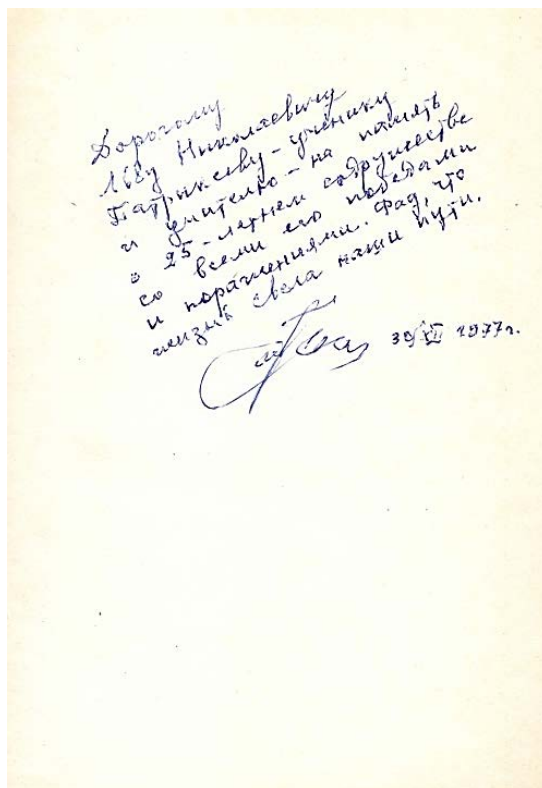 Дорогому
Льву Николаевичу
Патрикееву - ученику
и учителю - на память
о 25-летнем содружестве
со всеми его победами
и поражениями. Рад, что
жизнь свела наши пути.
30/XII 1977г.